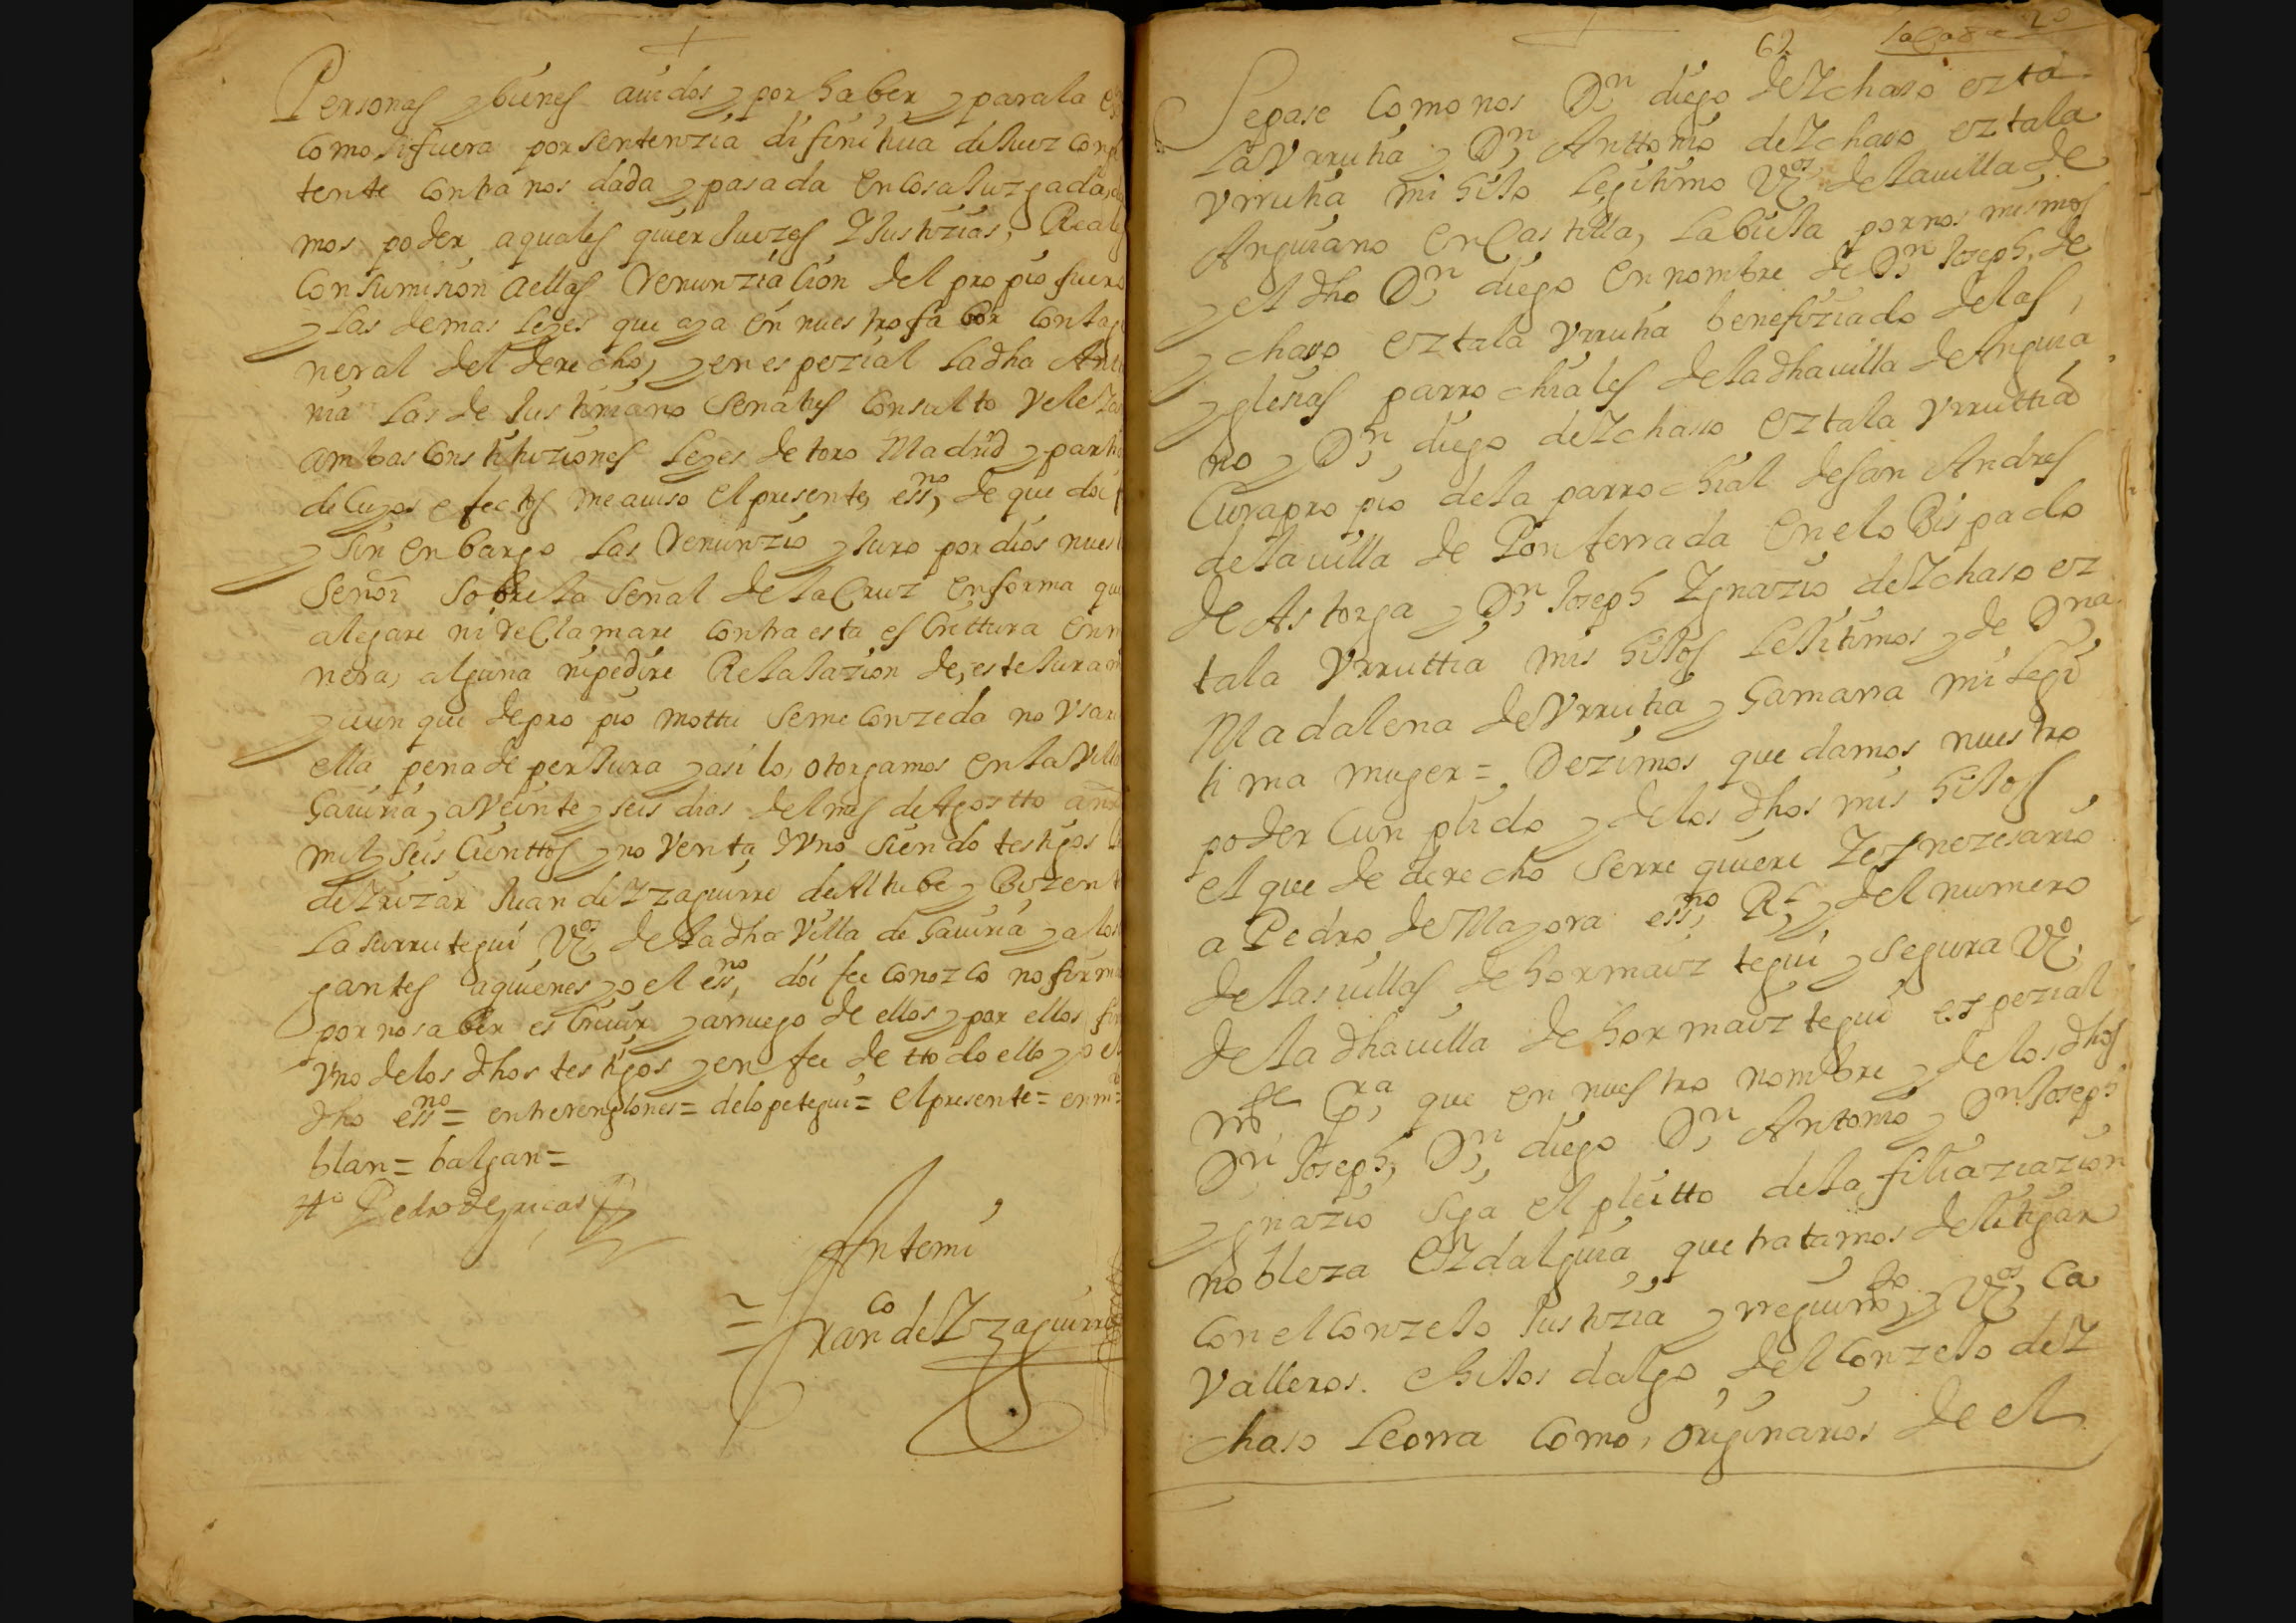 Personas y bienes auidos y por haber y para la
Como si fuera por sentenzia difinitiua de Juez Conpe
tente Contra nos dada y pasada en Cosa Juzgada,
mos poder a quales quier Juezes y Justizias, Reales
Con Sumision a ellas Renunziazion del propio fuero
y las demas leyes que aya en nuestro fabor Con la ge
neral del derecho, y en espezial la dha Anto
nia las de Justiniano Senatus Consulto Veleiano
ambas Constituziones leyes de toro Madrid y partida
de Cuyos efectos me auiso el presente, essno, de que doi
y Sin enbargo las Renunzio y Juro por dios nuestro
Señor Sobre la Señal de la Cruz en forma que
alegare ni Reclamare Contra esta esCrittura en m
nera, alguna ni pedire Relalazion de, este Juram
y aun que de pro pio mottu Se me Conzeda no Vsare
ella pena de perJura y asi lo, otorgamos en la Villa
Gauiria, a Veinte y seis dias del mes de Agostto año
mil y seis Cienttos y no Venta y Vno Siendo testigos
de Yrizar Juan de Yzaguirre de Altube y Bizente
Lasurrutegui Vos de la dha Villa de Gauiria y a los
gantes a quienes yo el essno, doi fee Conozco no firma
por no saber esCriuir y a rruego de ellos y por ellos fir
Vno de los dhos testigos y en fee de tto do ello yo el
dho essno = entre renglones = de lopetegui = el presente = enm=
blan = balgan =
to Pedro de Yricar
Ante mi
= Franco de Yzaguirre
62
Sepase Como nos Dn diego de Ychaso ozta
la Vrrutia y Dn Anttonio de Ychaso oztala
Vrrutia mi hiJo legitimo Vos de la uilla de
Anguiano en Castilla, la bieJa por nos mismos
y el dho Dn diego en nombre de Dn Joseph, de
ychaso oztala Vrrutia benefiziado de las
yglesias parrochiales de la dha uilla de Anguia
no y Dn diego de Ychaso oztala Vrruttia
Cura pro pio de la parrochial de San Andres
de la uilla de Ponferrada en el oBispado
de Astorga y Dn Joseph Ygnazio de Ychaso oz
tala Vrruttia mis hiJos leJitimos y de Dna
Madalena de Vrrutia y Gamarra mi legi
tima muger = Dezimos que damos nuestro
poder Cun plido y de los dhos mis hiJos
el que de derecho se rre quiere y es nezesario
a Pedro de Mayora essno Rl y del numero
de las uillas de hormaiztegui y segura Vo
de la dha uilla de hormaiztegui espezial
mte Pra que en nuestro nombre y de los dhos
Dn Joseph, Dn diego Dn Antonio y Dn Joseph
ygnazio siga el pleitto de la filiaziazion
nobleza eYdalguia que tratamos de litigar
Con el Conzejo Justizia y rreguimto y Vos Ca
Valleros. e hiJos dalgo del Conzejo de Y
chaso leorra Como, originarios de el